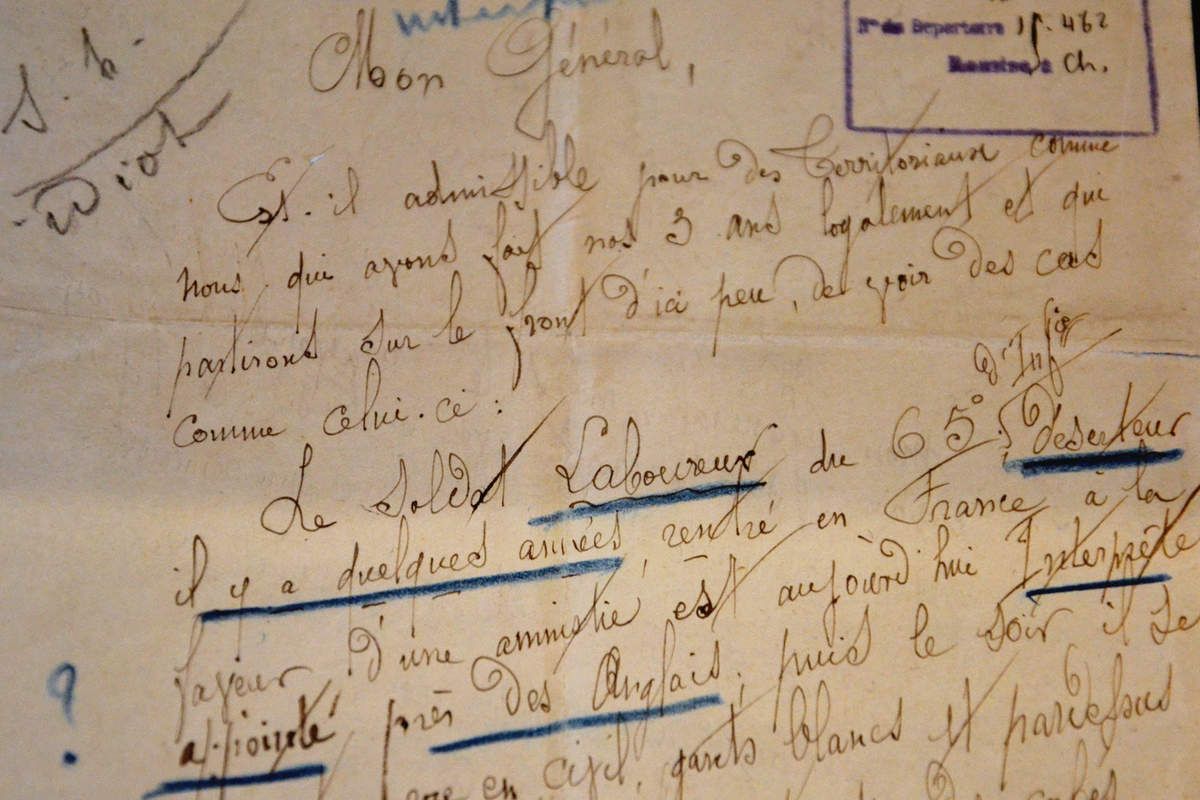 Mon Général,
N° de Répertoire 462
Ch.
S. h.
Est-il admissible pour des Territoriaux comme
nous qui avons fait nos 3 ans loyalement et qui
partirons sur le front d'ici peu, de voir des cas
comme celui-ci :
d'Inf^ie
Le soldat Laboureur du 65° déserteur
il y a quelques années, rentré en France à la
faveur d'une amnistie est aujourd'hui Interprète
appointé près des Anglais, puis le soir il se
?
en civil, gants blancs et pardessus